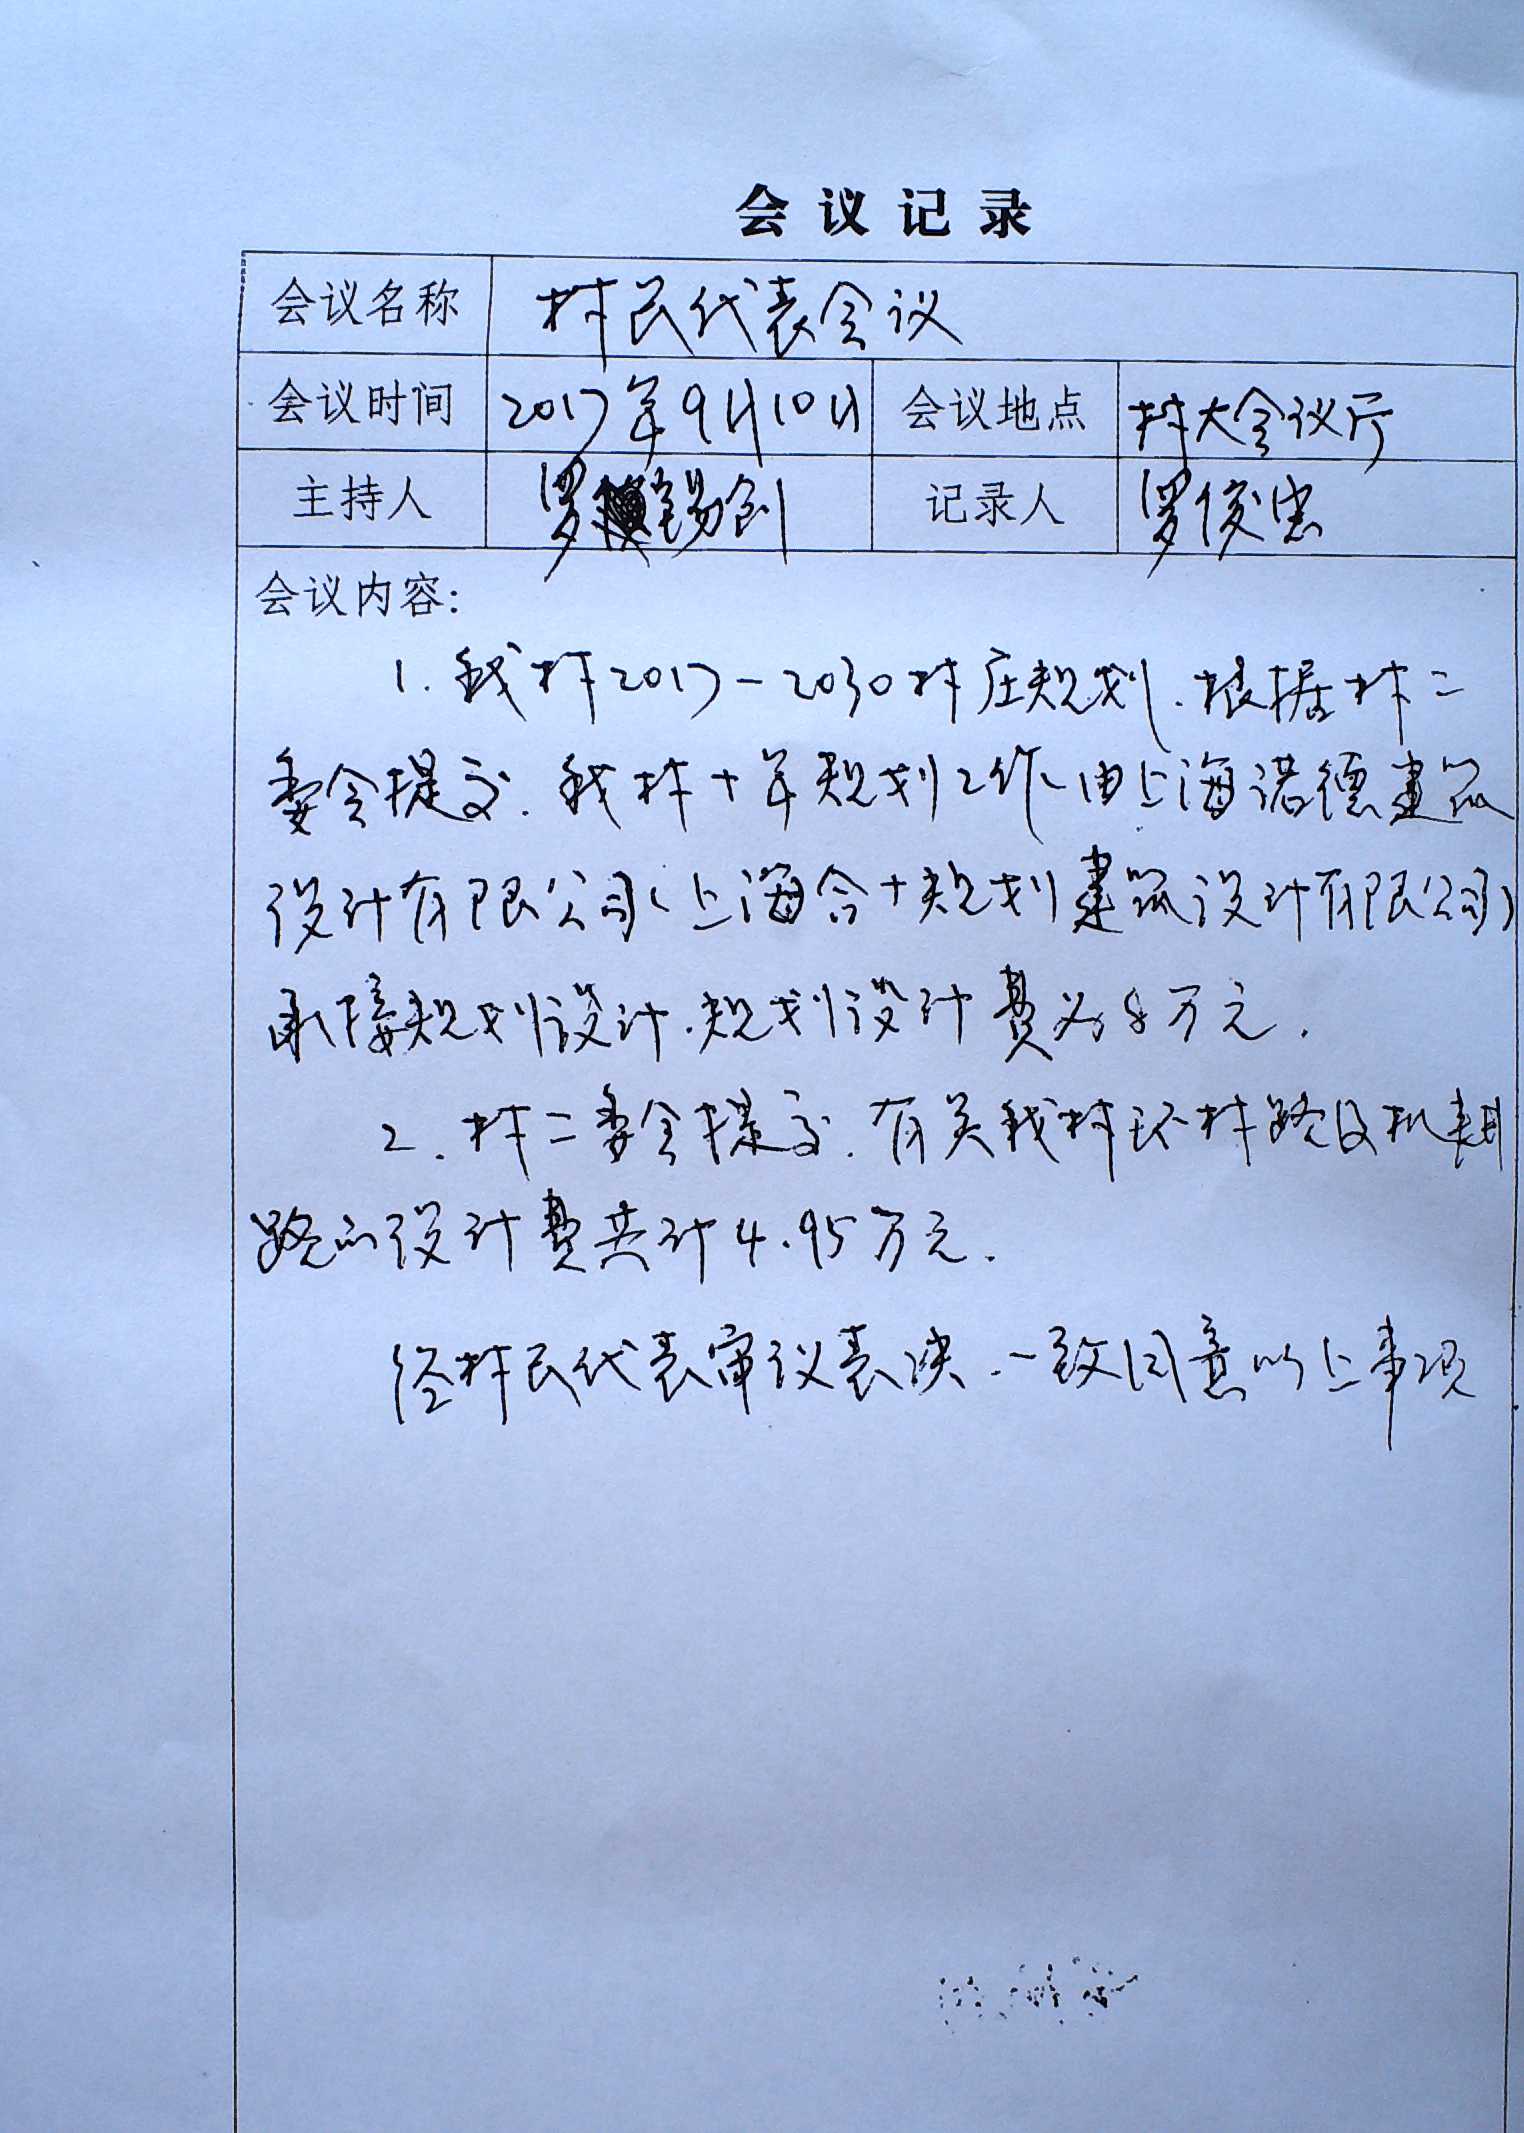 会议记录
会议名称 村民代表会议
会议时间 2017年9月10日 会议地点 村大会议厅
主持人 罗锡创 记录人 罗俊忠
会议内容:
1. 我村2017-2030村庄规划.根据村二
委会提交.我村十年规划工作由上海诺德建筑
设计有限公司(上海合十规划建筑设计有限公司)
承接规划设计.规划设计费为8万元.
2. 村二委会提交.有关我村环村路及机耕
路的设计费共计4.95万元.
经村民代表审议表决.一致同意以上事项